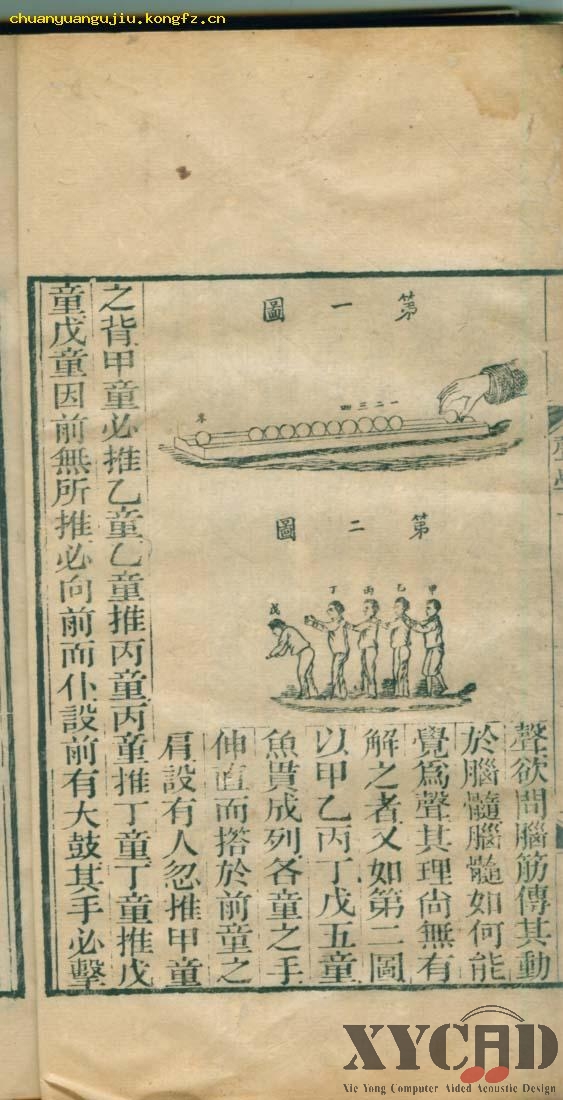 chuanyuangujiu.kongfz.cn
第一圖
一
二
三
四
零
第二圖
甲
乙
丙
丁
戊
聲欲問腦筋傳其動
於腦髓腦髓如何能
覺爲聲其理尙無有
解之者又如第二圖
以甲乙丙丁戊五童
魚貫成列各童之手
伸直而搭於前童之
肩設有人忽推甲童
之背甲童必推乙童乙童推丙童丙童推丁童丁童推戊
童戊童因前無所推必向前而仆設前有大鼓其手必擊
XYCAD
Xie Yong Computer Aided Acoustic Design